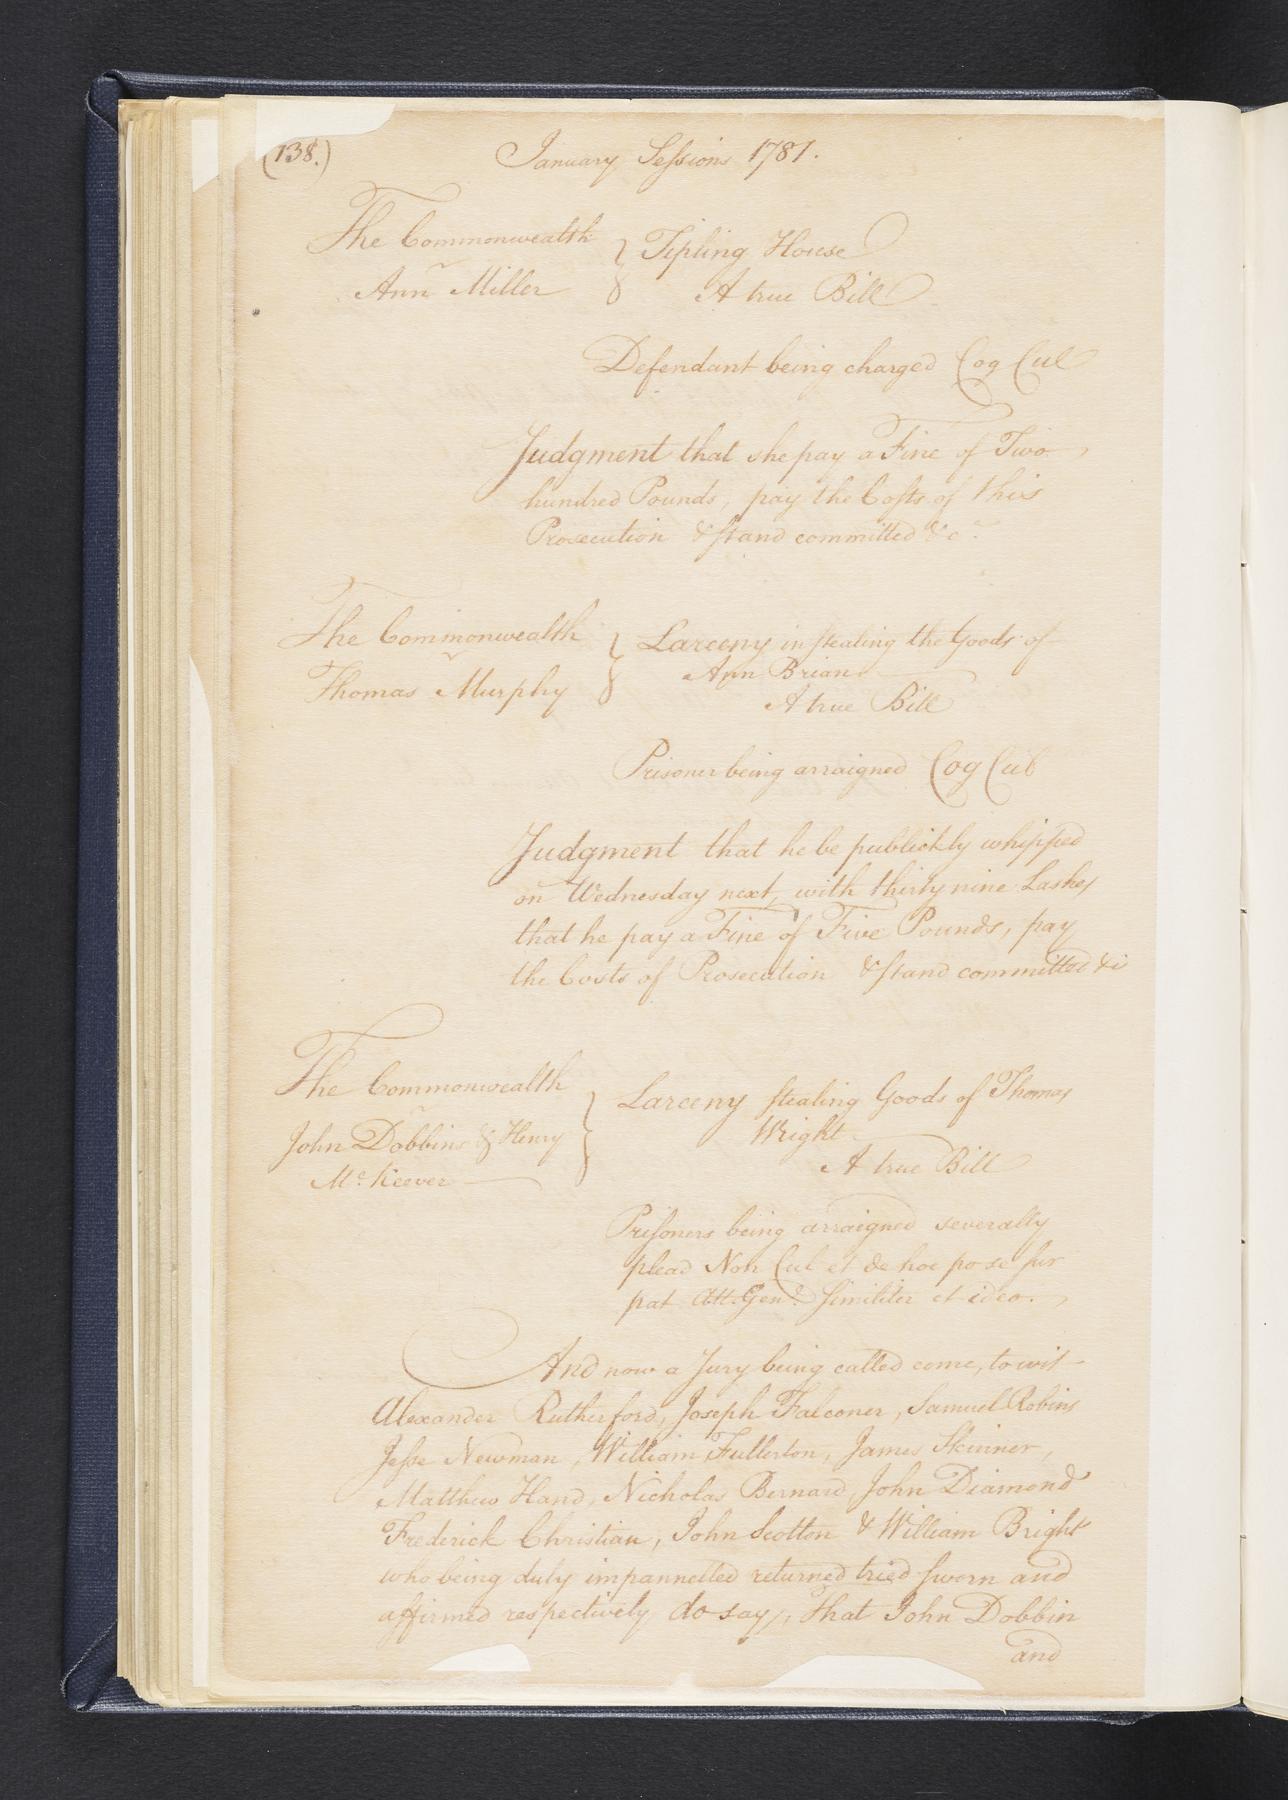 (138.)
January Sessions 1781.
The Commonwealth
v
Ann Miller
Tipling House
A true Bill
Defendant being charged Cog Cul
Judgment that she pay a Fine of Two
hundred Pounds, pay the Costs of this
Prosecution & stand committed &c.
The Commonwealth
v
Thomas Murphy
Larceny in stealing the Goods of
Ann Brian
A true Bill
Prisoner being arraigned Cog Cul
Judgment that he be publickly whipped
on Wednesday next, with thirty nine Lashes
that he pay a Fine of Five Pounds, pay
the Costs of Prosecution & stand committed &c
The Commonwealth
v
John Dobbins & Henry
Mc. Keever
Larceny stealing Goods of Thomas
Wright
A true Bill
Prisoners being arraigned severally
plead Non Cul et de hoc po se sur
pat Att. Genl. similiter et ideo.
And now a Jury being called come, to wit
Alexander Rutherford, Joseph Falconer, Samuel Robins
Jesse Newman, William Fullerton, James Skinner,
Matthew Hand, Nicholas Bernard, John Diamond
Frederick Christian, John Scotton & William Bright
who being duly impannelled returned tried sworn and
affirmed respectively do say, that John Dobbin
and